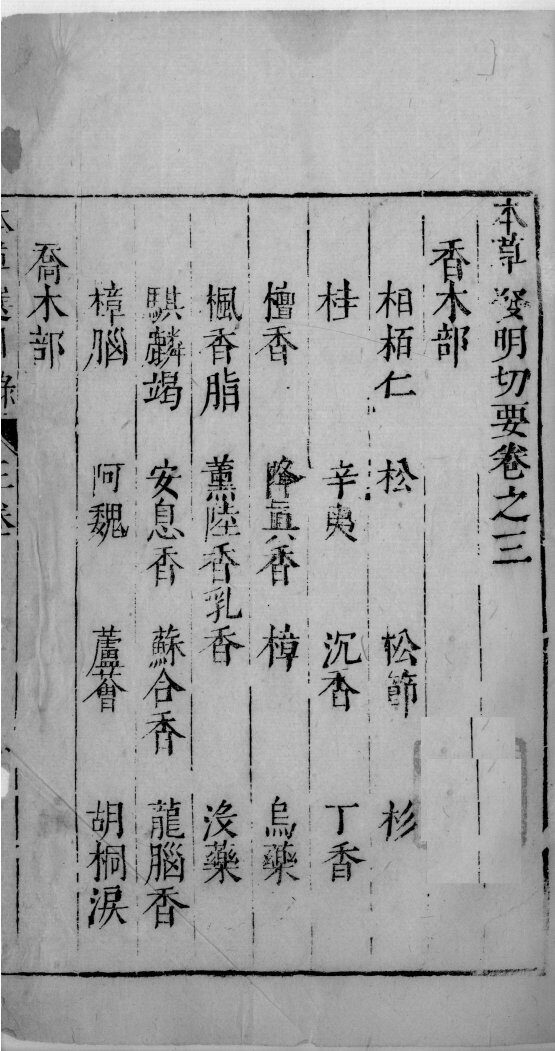 本草發明切要卷之三
香木部
柏柏仁 松 松節 杉
桂 辛夷 沉香 丁香
檀香 降真香 樟 烏藥
楓香脂 薰陸香乳香 沒藥
騏麟竭 安息香 蘇合香 龍腦香
樟腦 阿魏 蘆薈 胡桐淚
喬木部